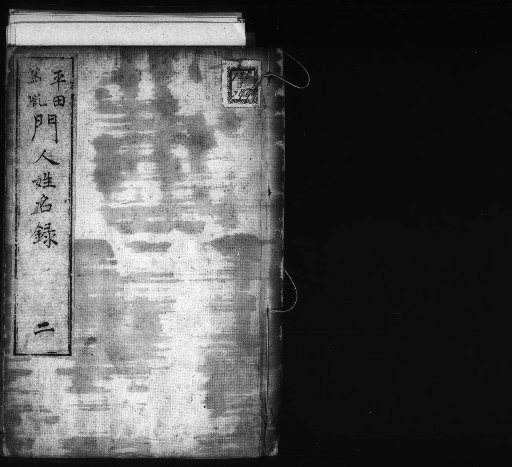 平田
門人姓名録
二